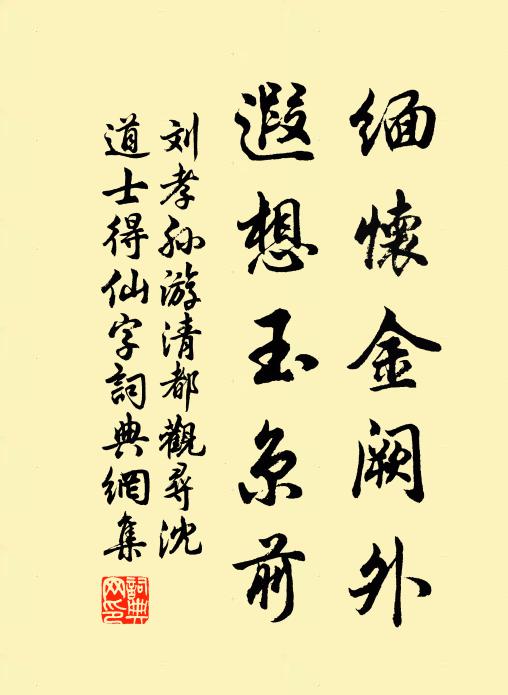 缅懷金阙外
遐想玉京前
刘孝孙游清都觀尋沈
道士得仙字詞典網集